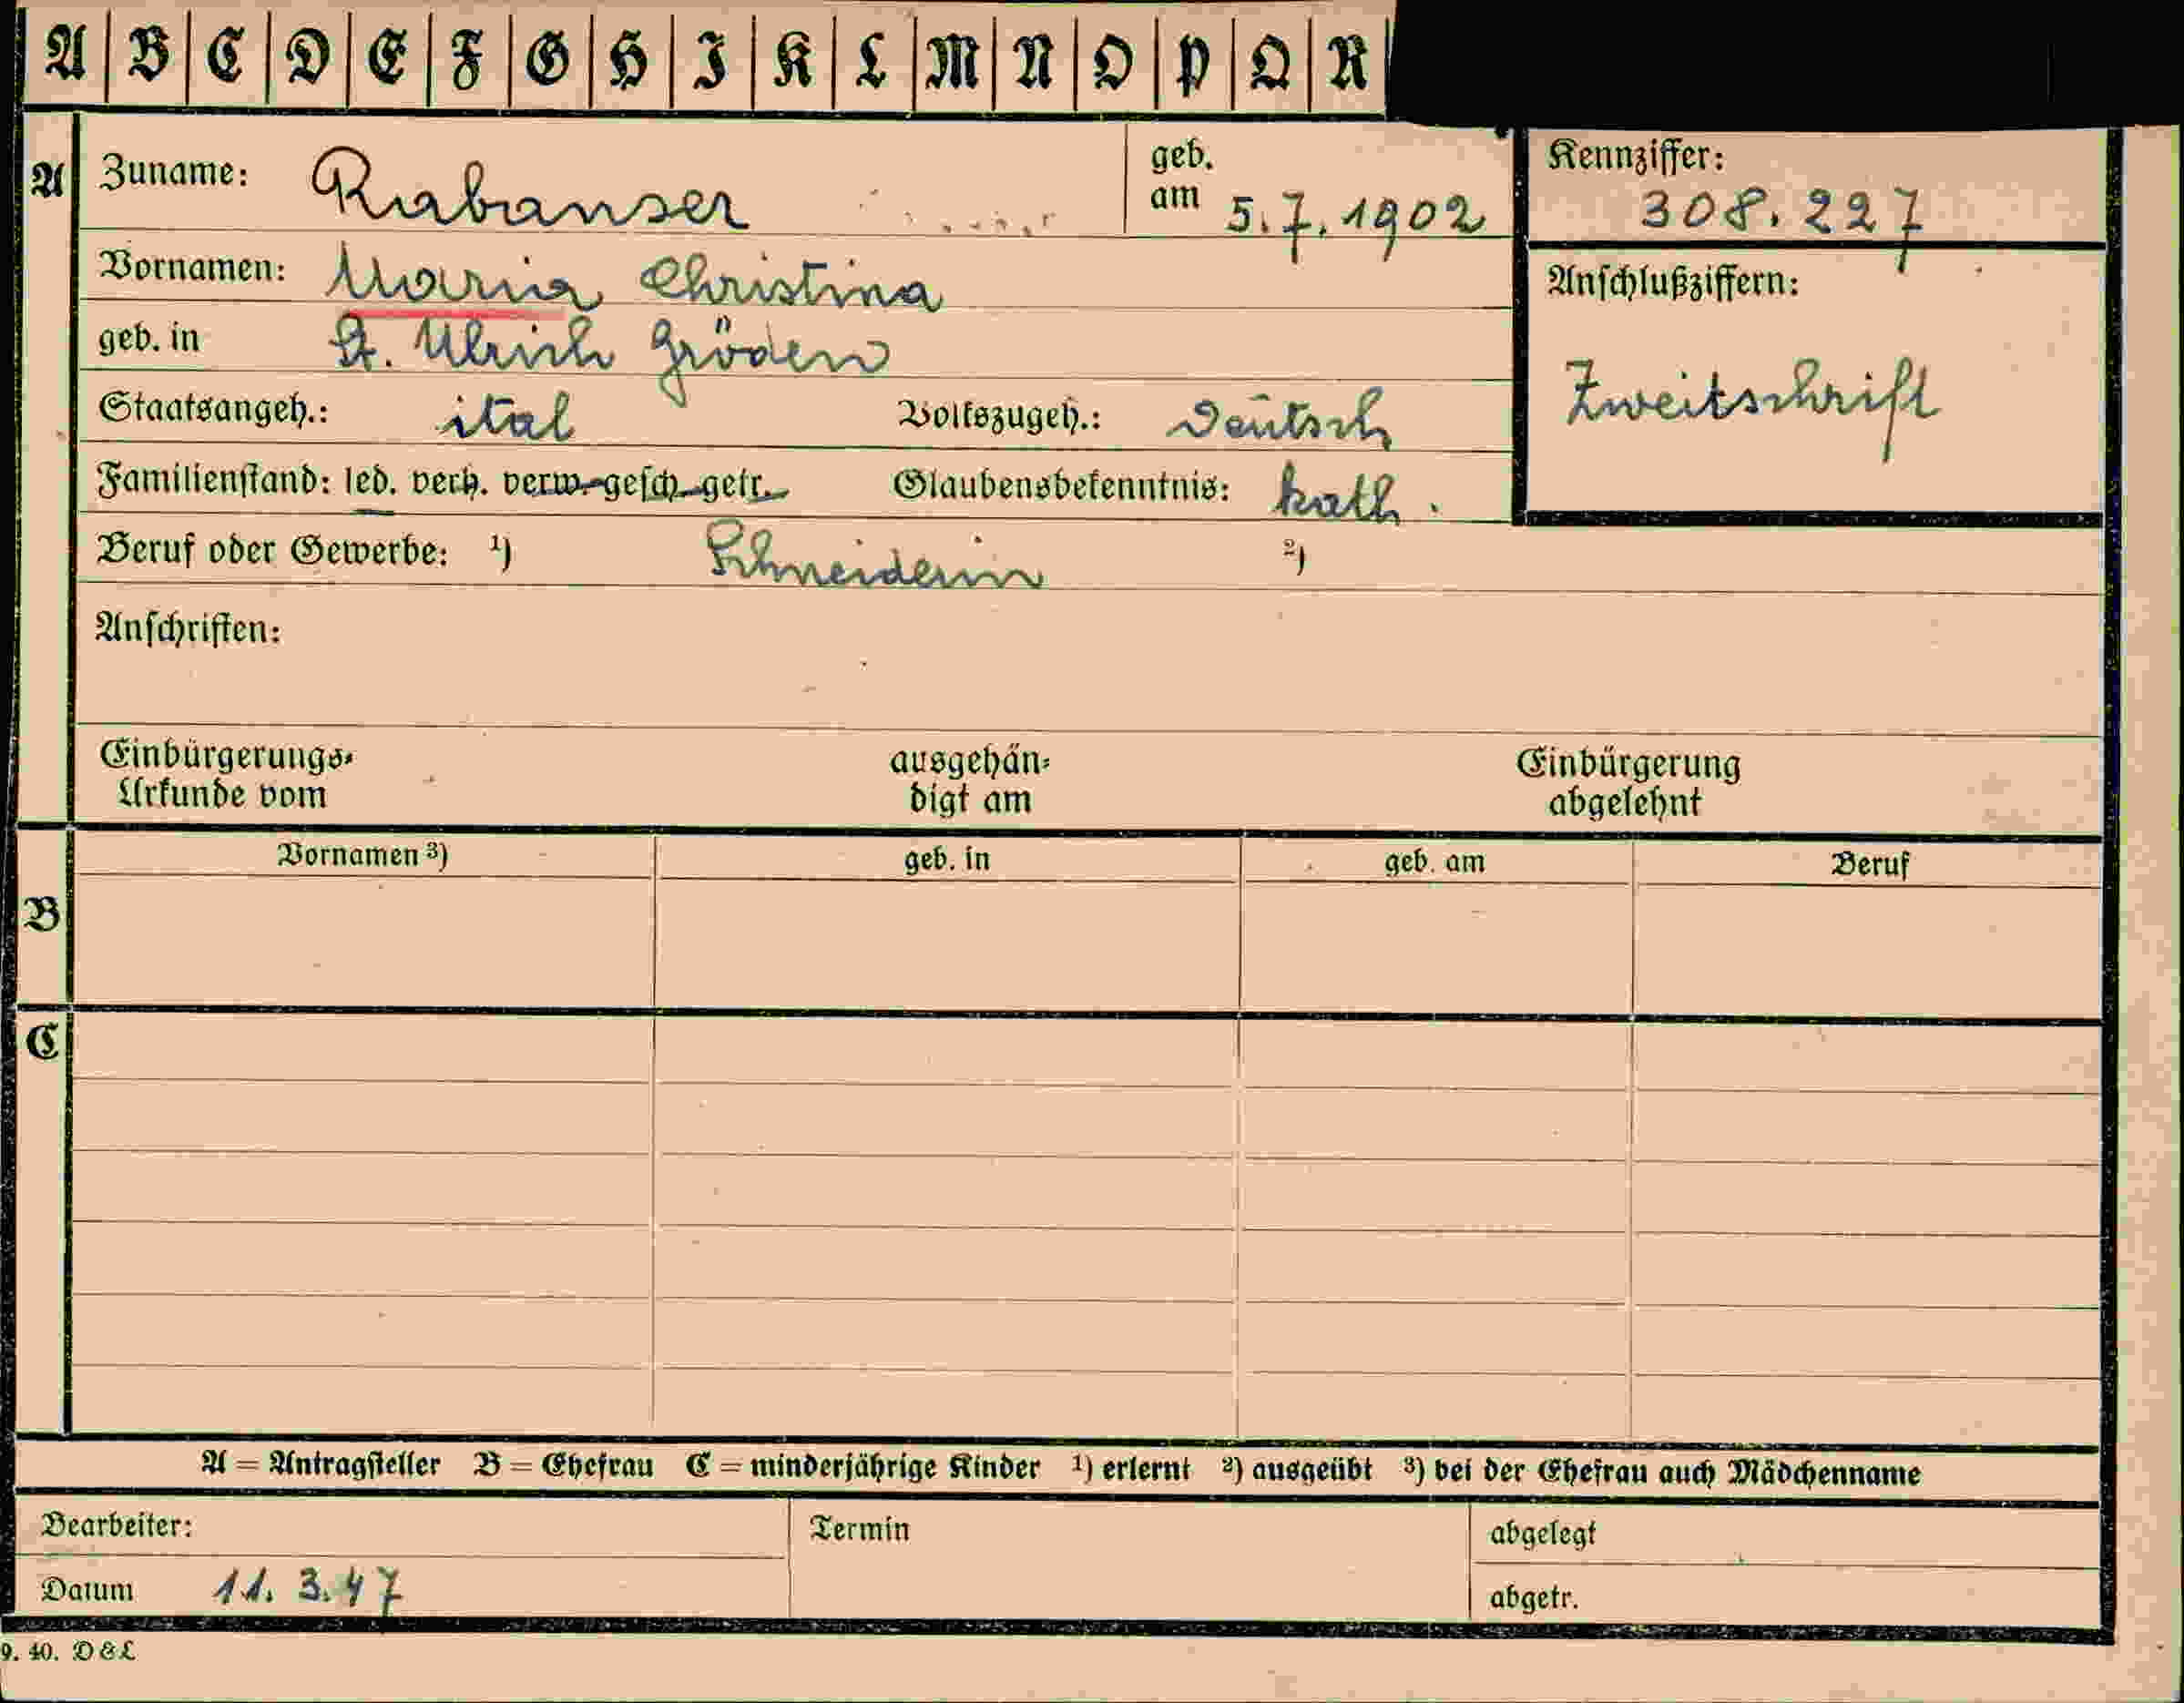 A B C D E F G H I K L M N O P Q R
A Zuname: Rabanser geb. am 5.7.1902 Kennziffer: 308.227
Vornamen: Maria Christina
Anschlußziffern:
geb. in St. Ulrich Gröden
Zweitschrift
Staatsangeh.: ital Volkszugeh.: Deutsch
Familienstand: led. verh. verw. gesch. getr. Glaubensbekenntnis: kath.
Beruf oder Gewerbe: 1) Schneiderin 2)
Anschriften:
Einbürgerungs- ausgehän- Einbürgerung
Urkunde vom digt am abgelehnt
Vornamen 3) geb. in geb. am Beruf
B
C
A = Antragsteller B = Ehefrau C = minderjährige Kinder 1) erlernt 2) ausgeübt 3) bei der Ehefrau auch Mädchenname
Bearbeiter: Termin abgelegt
Datum 11. 3. 47 abgetr.
9. 40. D & L